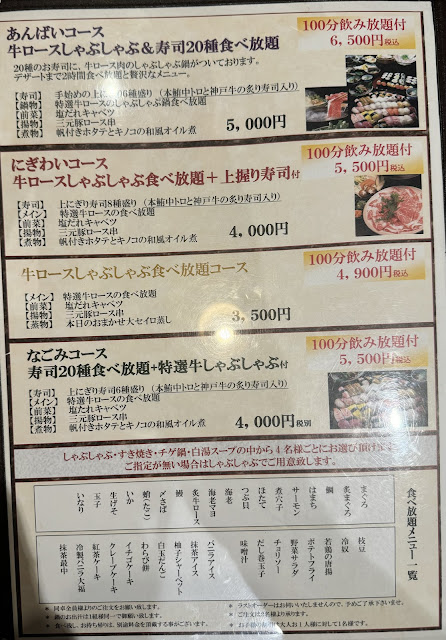 あんばいコース
牛ロースしゃぶしゃぶ＆寿司20種食べ放題
100分飲み放題付
6,500円税込
20種のお寿司に、牛ロース肉のしゃぶしゃぶ鍋がついております。
デザートまで2時間食べ放題と贅沢なメニュー。
【寿司】 手始めの上に 06種盛り（本鮪中トロと神戸牛の炙り寿司入り）
【鍋物】 特選牛ロースのしゃぶしゃぶ鍋食べ放題
【前菜】 塩だれキャベツ
【揚物】 三元豚ロース串
【煮物】 帆付きホタテとキノコの和風オイル煮
5,000円
にぎわいコース
牛ロースしゃぶしゃぶ食べ放題＋上握り寿司付
100分飲み放題付
5,500円税込
【寿司】 上にぎり寿司8種盛り（本鮪中トロと神戸牛の炙り寿司入り）
【メイン】 特選牛ロースの食べ放題
【前菜】 塩だれキャベツ
【揚物】 三元豚ロース串
【煮物】 帆付きホタテとキノコの和風オイル煮
4,000円
牛ロースしゃぶしゃぶ食べ放題コース
100分飲み放題付
4,900円税込
【メイン】 特選牛ロースの食べ放題
【前菜】 塩だれキャベツ
【揚物】 三元豚ロース串
【蒸物】 本日のおまかせ大セイロ蒸し
3,500円
なごみコース
寿司20種食べ放題+特選牛しゃぶしゃぶ付
100分飲み放題付
5,500円税込
【寿司】 上にぎり寿司6種盛り（本鮪中トロと神戸牛の炙り寿司入り）
【メイン】 特選牛ロースの食べ放題
【前菜】 塩だれキャベツ
【揚物】 三元豚ロース串
【煮物】 帆付きホタテとキノコの和風オイル煮
4,000円税別
しゃぶしゃぶ・すき焼き・チゲ鍋・白湯スープの中から4名様ごとにお選び頂けます
ご指定が無い場合はしゃぶしゃぶでご用意致します。
食べ放題メニュー一覧
まぐろ
炙まぐろ
鯛
はまち
サーモン
煮穴子
ほたて
つぶ貝
海老
海老マヨ
炙牛ロース
鰻
〆さば
蛸べたこ
いか
生げそ
玉子
いなり
枝豆
冷奴
若鶏の唐揚
ポテトフライ
野菜サラダ
チョリソー
だし巻玉子
味噌汁
バニラアイス
抹茶アイス
柚子シャーベット
白玉だんご
わらび餅
イチゴケーキ
クレープケーキ
紅茶ケーキ
冷製バニラ大福
抹茶最中
※ 同卓全員様よりのご注文をお願い致します。
※ 鍋のお出汁は1組様同一でお願い致します。
※ 食べ残し、お持ち帰りは、別途料金を頂戴する事がございます。
※ ラストオーダーはお伺いいたしませんので、予めご了承下さいませ。
※ ご注文は2名様より承ります。